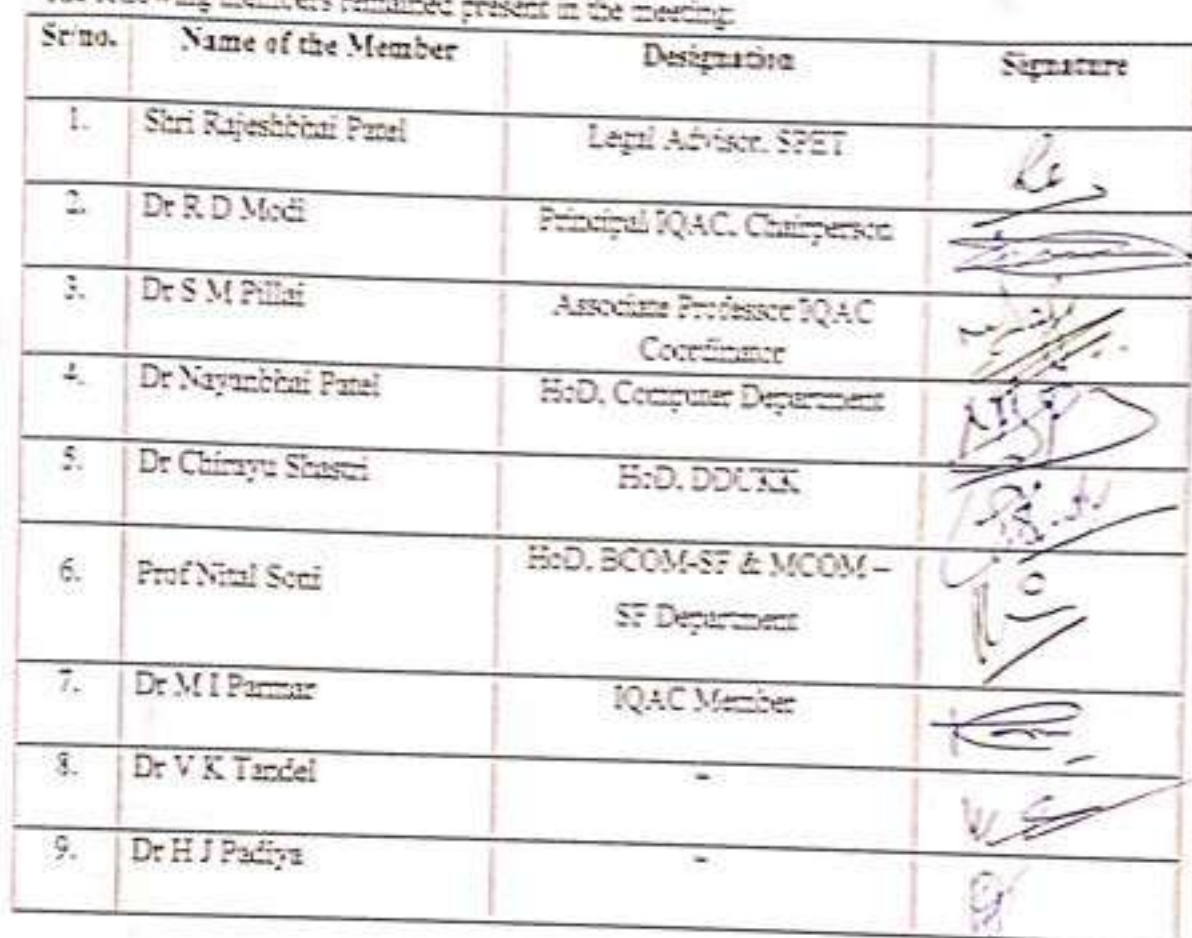 following members remained present in the meeting:
Sr/no. Name of the Member Designation Signature
1. Shri Rajeshbhai Patel Legal Advisor, SPET
2. Dr R D Modi Principal IQAC, Chairperson
3. Dr S M Pillai Associate Professor IQAC
Coordinator
4. Dr Nayanbhai Patel HoD, Computer Department
5. Dr Chirayu Shastri HoD, DDUKK
6. Prof Nital Soni HoD, BCOM-SF & MCOM –
SF Department
7. Dr M I Parmar IQAC Member
8. Dr V K Tandel -
9. Dr H J Padiya -